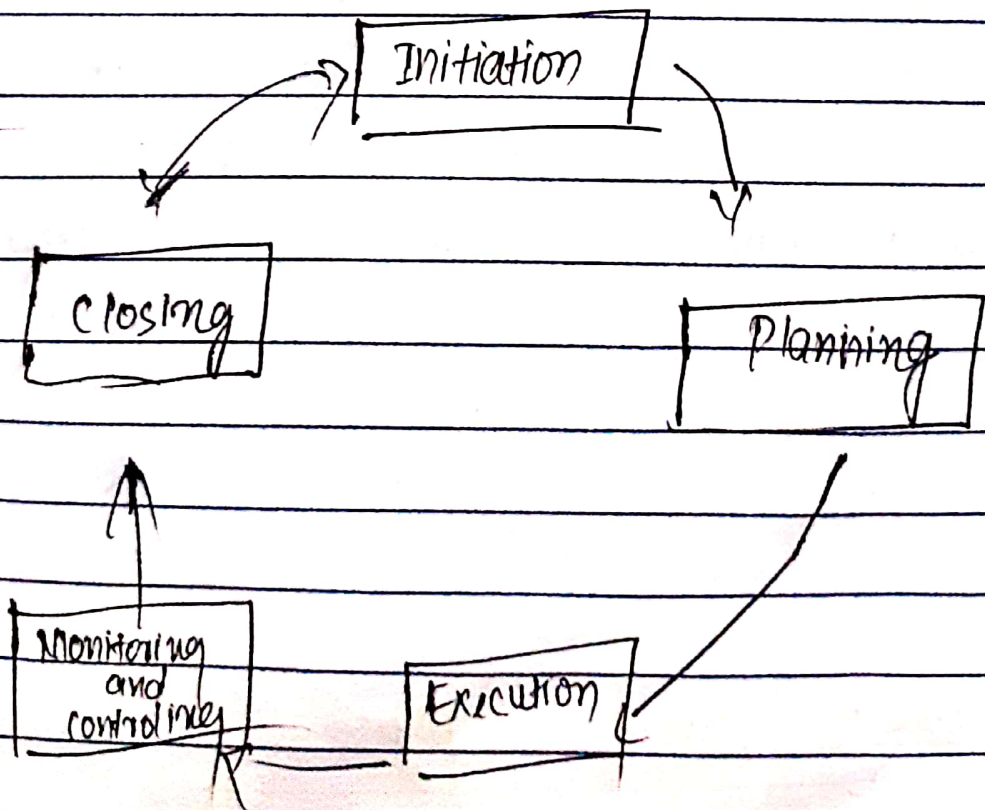 Initiation
Closing
Planning
Monitoring
and
controling
Execution